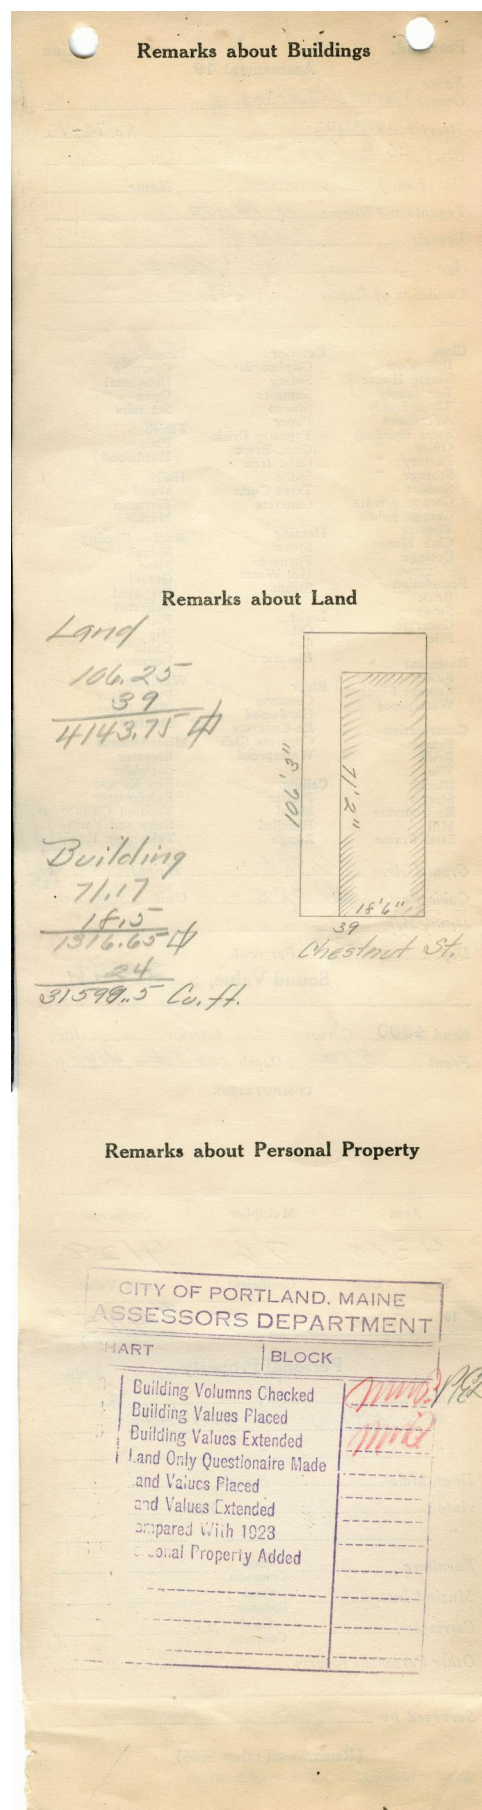 Remarks about Buildings
Remarks about Land
Land
106.25
39
4143.75
106'3"
71'2"
18'6"
39
Chestnut St.
Building
71.17
18.5
1316.65
24
31599.5 Cu. ft.
Remarks about Personal Property
CITY OF PORTLAND, MAINE
ASSESSORS DEPARTMENT
HART BLOCK
Building Volumns Checked
Building Values Placed
Building Values Extended
Land Only Questionaire Made
and Values Placed
and Values Extended
ompared With 1923
onal Property Added